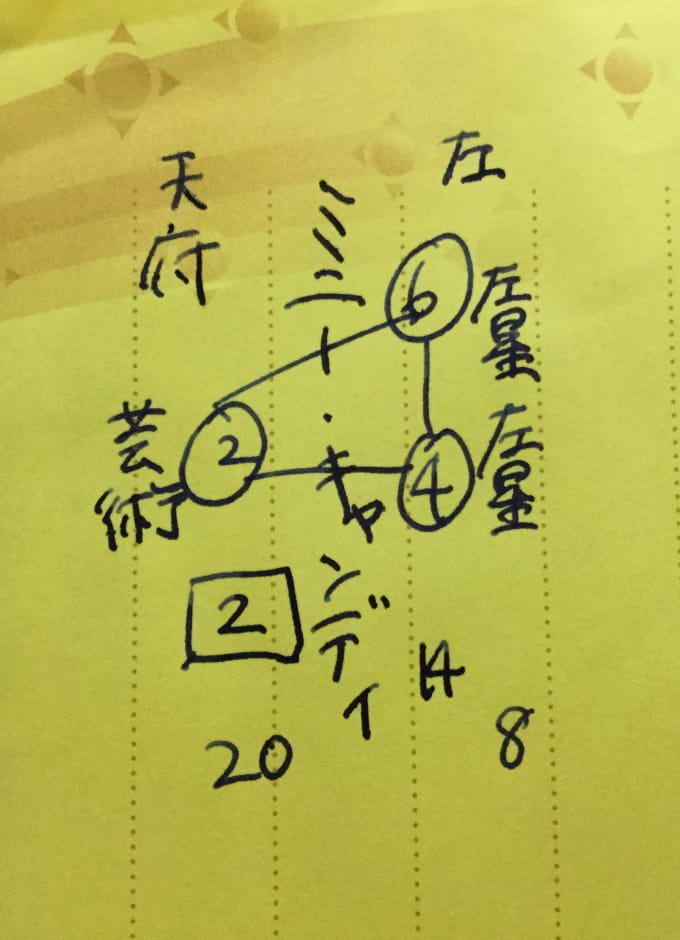 左
6
左星
4
左星
ミニー・キャンディ
天府
2
芸術
2
20
14
8